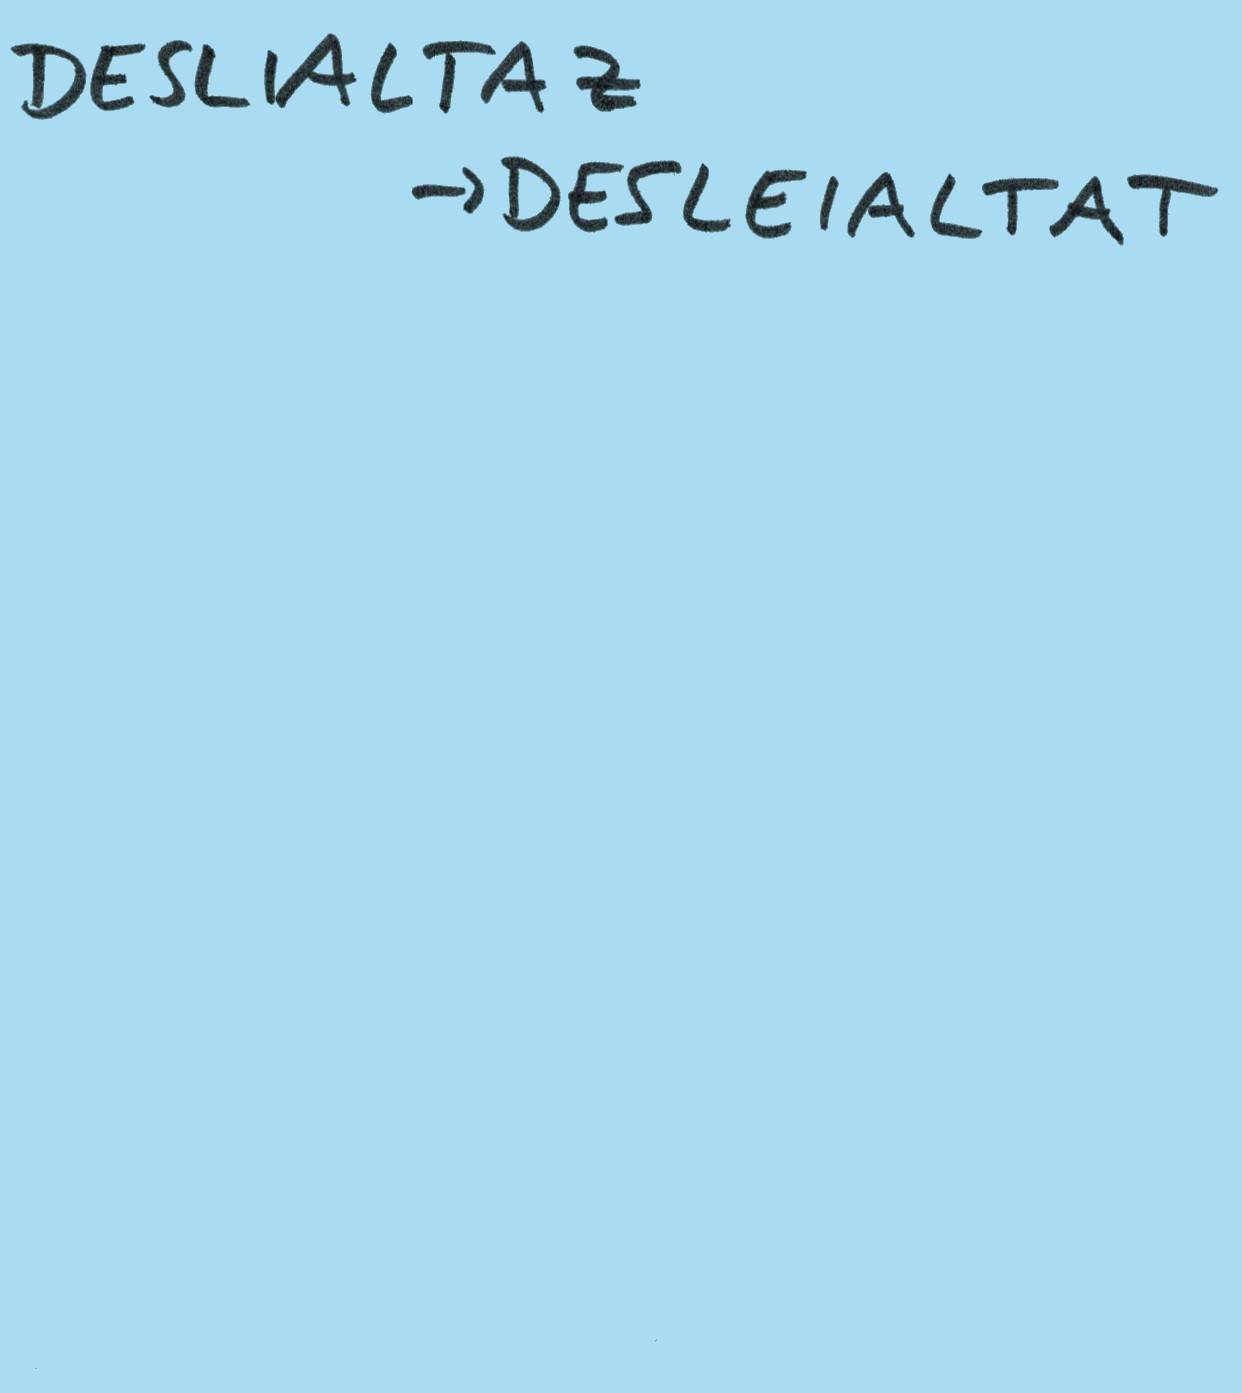 DESLIALTAZ
→DESLEIALTAT